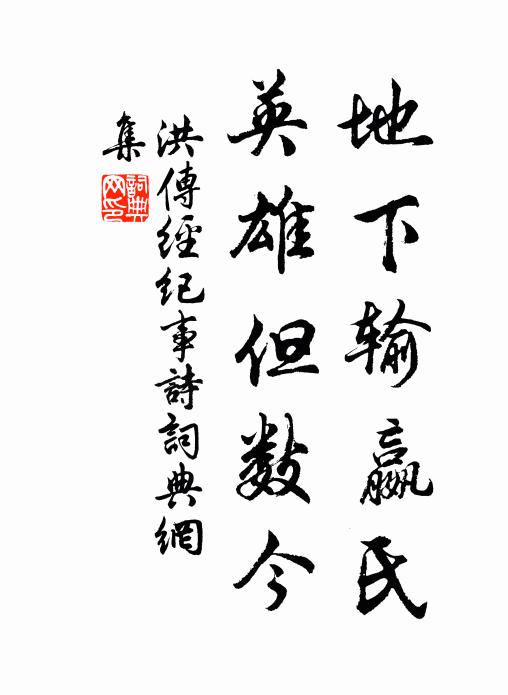 地下输嬴氏
英雄但数今
洪傳經紀事詩詞典網
集
詞典
网印